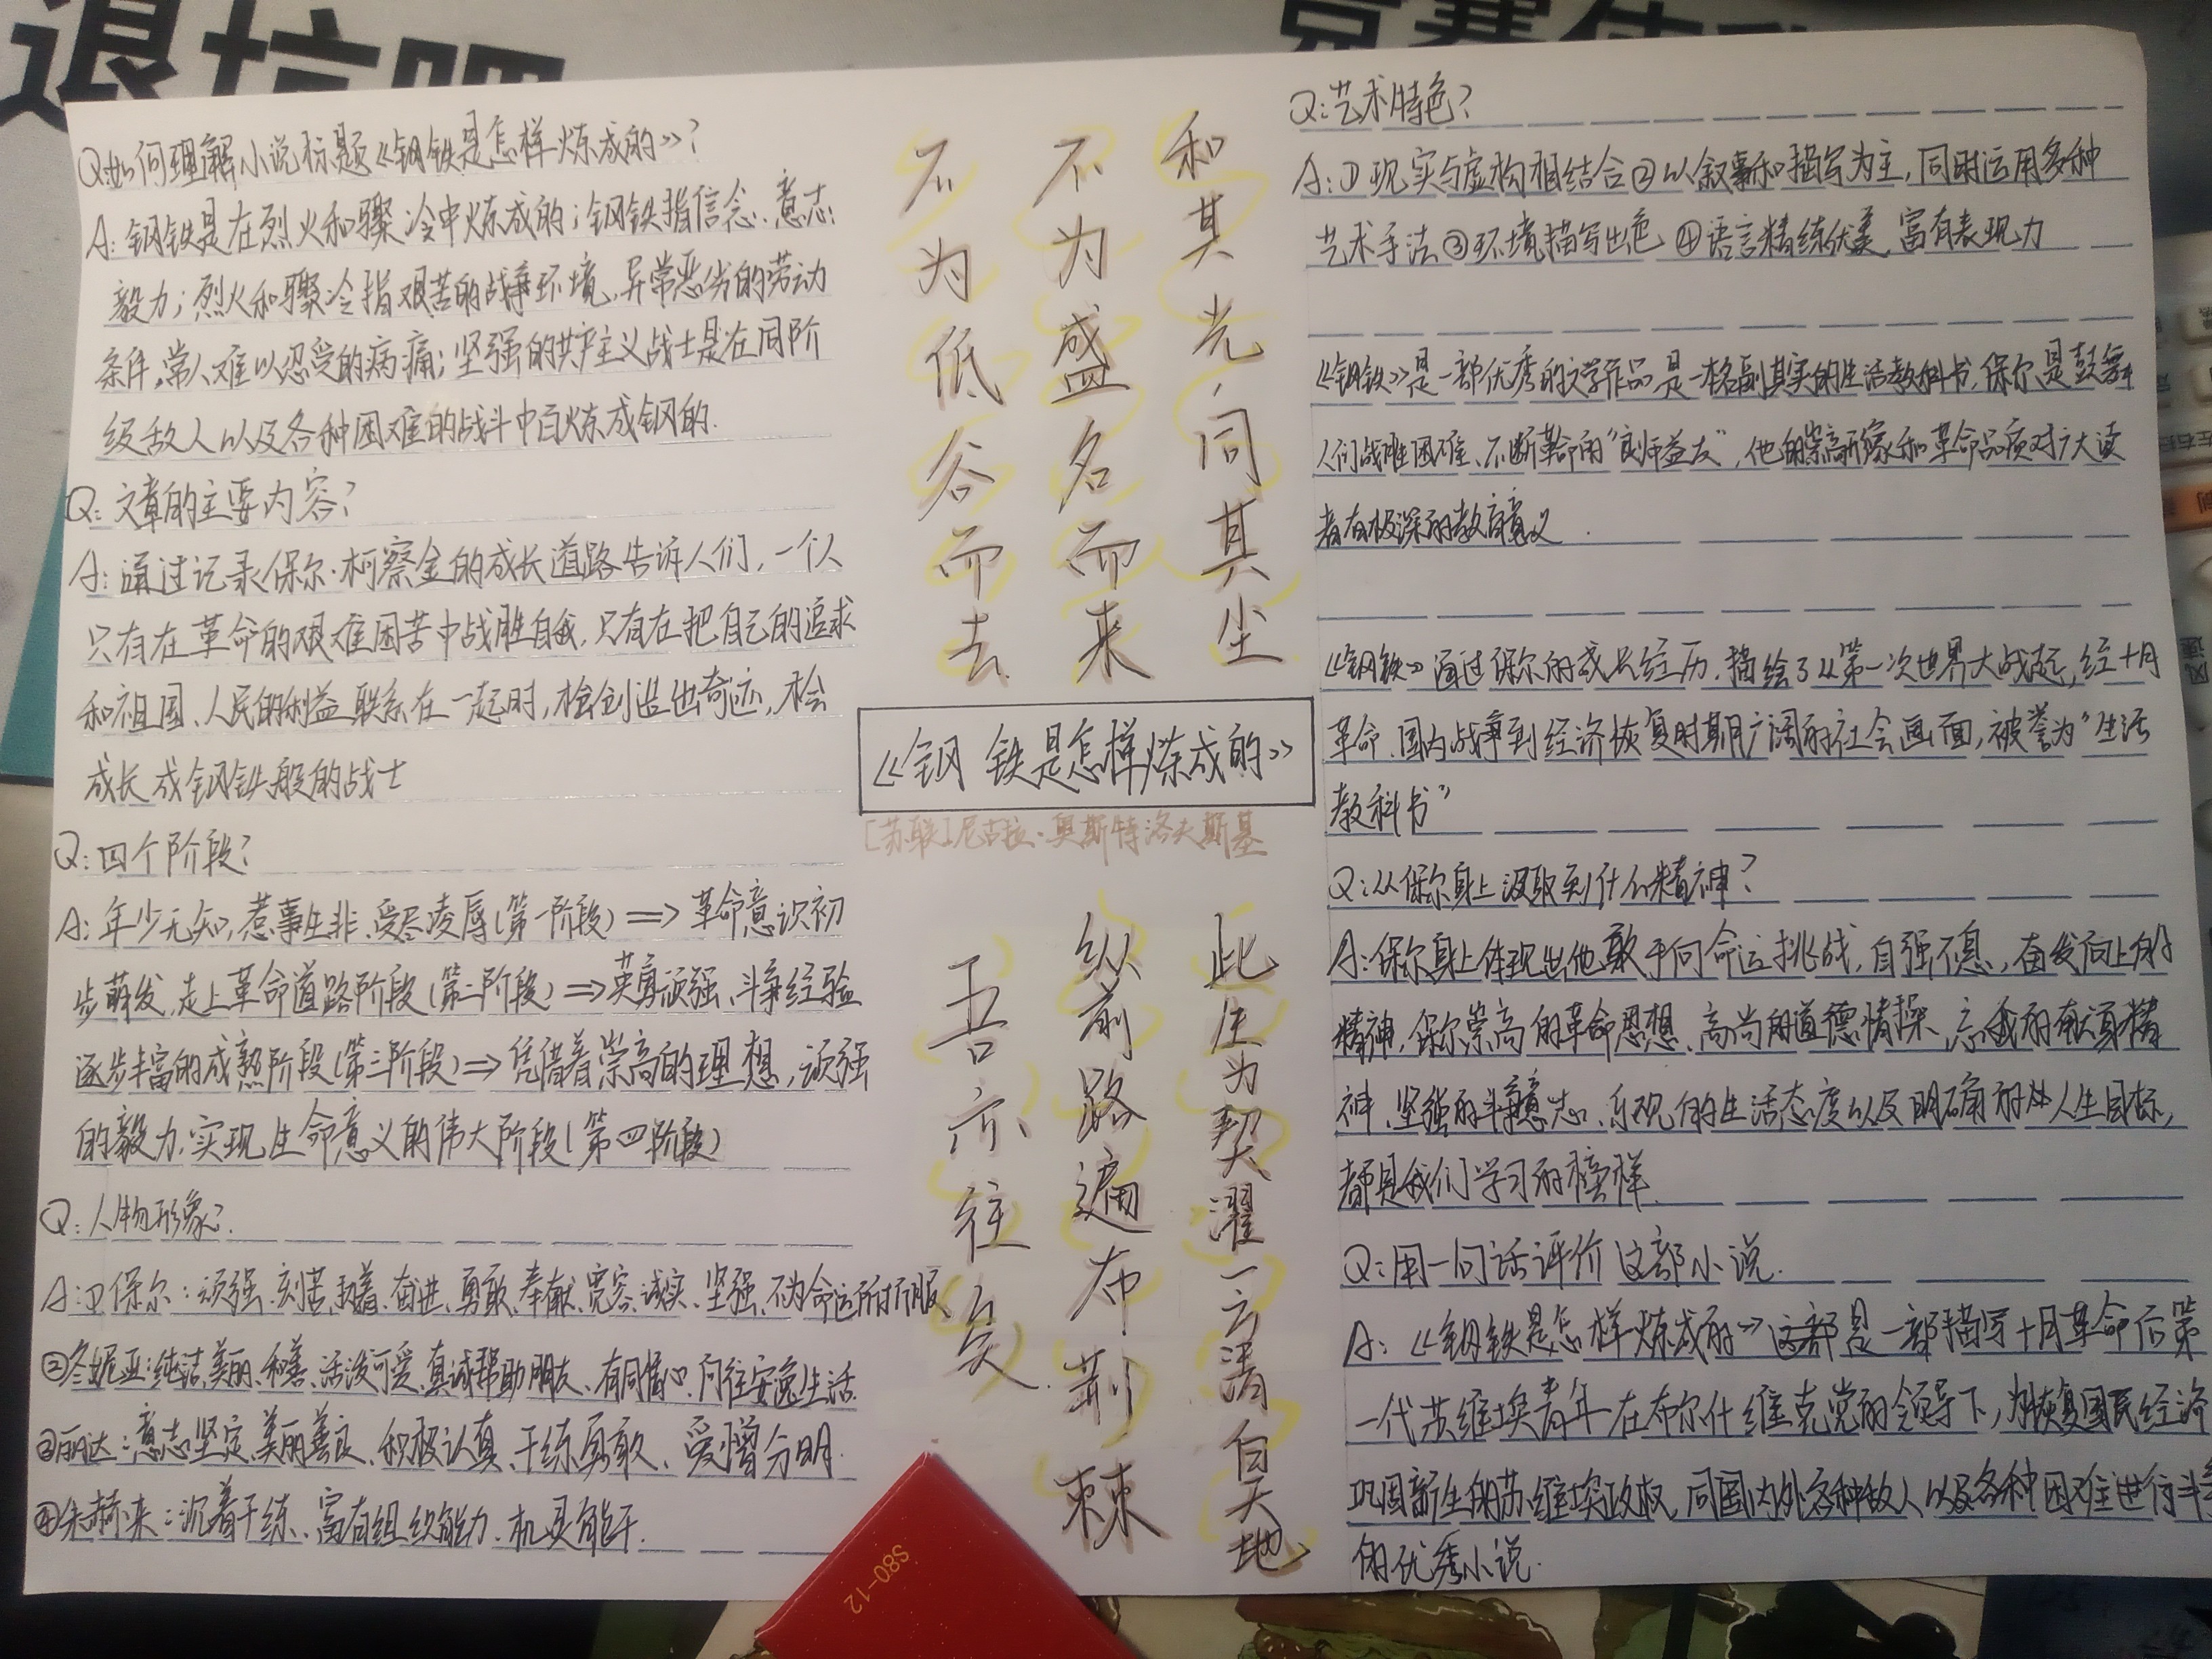 Q:如何理解小说标题《钢铁是怎样炼成的》?
A:钢铁是在烈火和骤冷中炼成的;钢铁指信念、意志、
毅力;烈火和骤冷指艰苦的战争环境、异常恶劣的劳动
条件,常人难以忍受的病痛;坚强的共产主义战士是在同阶
级敌人以及各种困难的战斗中百炼成钢的.
Q:文章的主要内容?
A:通过记录保尔·柯察金的成长道路告诉人们,一个人
只有在革命的艰难困苦中战胜自我,只有在把自己的追求
和祖国、人民的利益联系在一起时,检创造出奇迹,检
成长成钢铁般的战士
Q:四个阶段?
A:年少无知,惹事生非、受尽凌辱(第一阶段)⇒革命意识初
步萌发,走上革命道路阶段(第二阶段)⇒英勇顽强、斗争经验
逐步丰富的成熟阶段(第三阶段)⇒凭借着崇高的理想,顽强
的毅力,实现生命意义的伟大阶段(第四阶段)
Q:人物形象?
A:①保尔:顽强、刻苦、执着、奋进、勇敢、奉献、宽容、诚实、坚强、不为命运所折服
②冬妮亚:纯洁、美丽、和善、活泼可爱、真诚帮助朋友、有同情心、向往安逸生活.
③丽达:意志坚定、美丽善良、积极认真、干练勇敢、爱憎分明.
④朱赫来:沉着干练、富有组织能力、机灵能干.
和其光,同其尘
不为盛名而来
不为低谷而去.
《钢铁是怎样炼成的》
[苏联]尼古拉·奥斯特洛夫斯基
此生为契濯一云清白昊天地
纵前路遍布荆棘
吾亦往矣.
Q:艺术特色?
A:①现实与虚构相结合②以叙事和描写为主,同时运用多种
艺术手法③环境描写出色 ④语言精练优美,富有表现力
《钢铁》是一部优秀的文学作品,是一本名副其实的生活教科书,保尔是鼓舞
人们战胜困难、不断革命的“良师益友”,他的崇高形象和革命品质对广大读
者有极深的教育意义.
《钢铁》通过保尔的成长经历,描绘了从第一次世界大战起,经十月
革命、国内战争到经济恢复时期广阔的社会画面,被誉为“生活
教科书”
Q:从保尔身上汲取到什么精神?
A:保尔身上体现出他敢于向命运挑战,自强不息,奋发向上的
精神,保尔崇高的革命思想、高尚的道德情操、忘我的献身精
神、坚强的斗争意志、乐观的生活态度以及明确的人生目标,
都是我们学习的榜样.
Q:用一句话评价这部小说.
A:《钢铁是怎样炼成的》这部是一部描写十月革命后第
一代苏维埃青年在布尔什维克党的领导下,为恢复国民经济
巩固新生的苏维埃政权,同国内外各种敌人以及各种困难进行斗争
的优秀小说.
S80-12